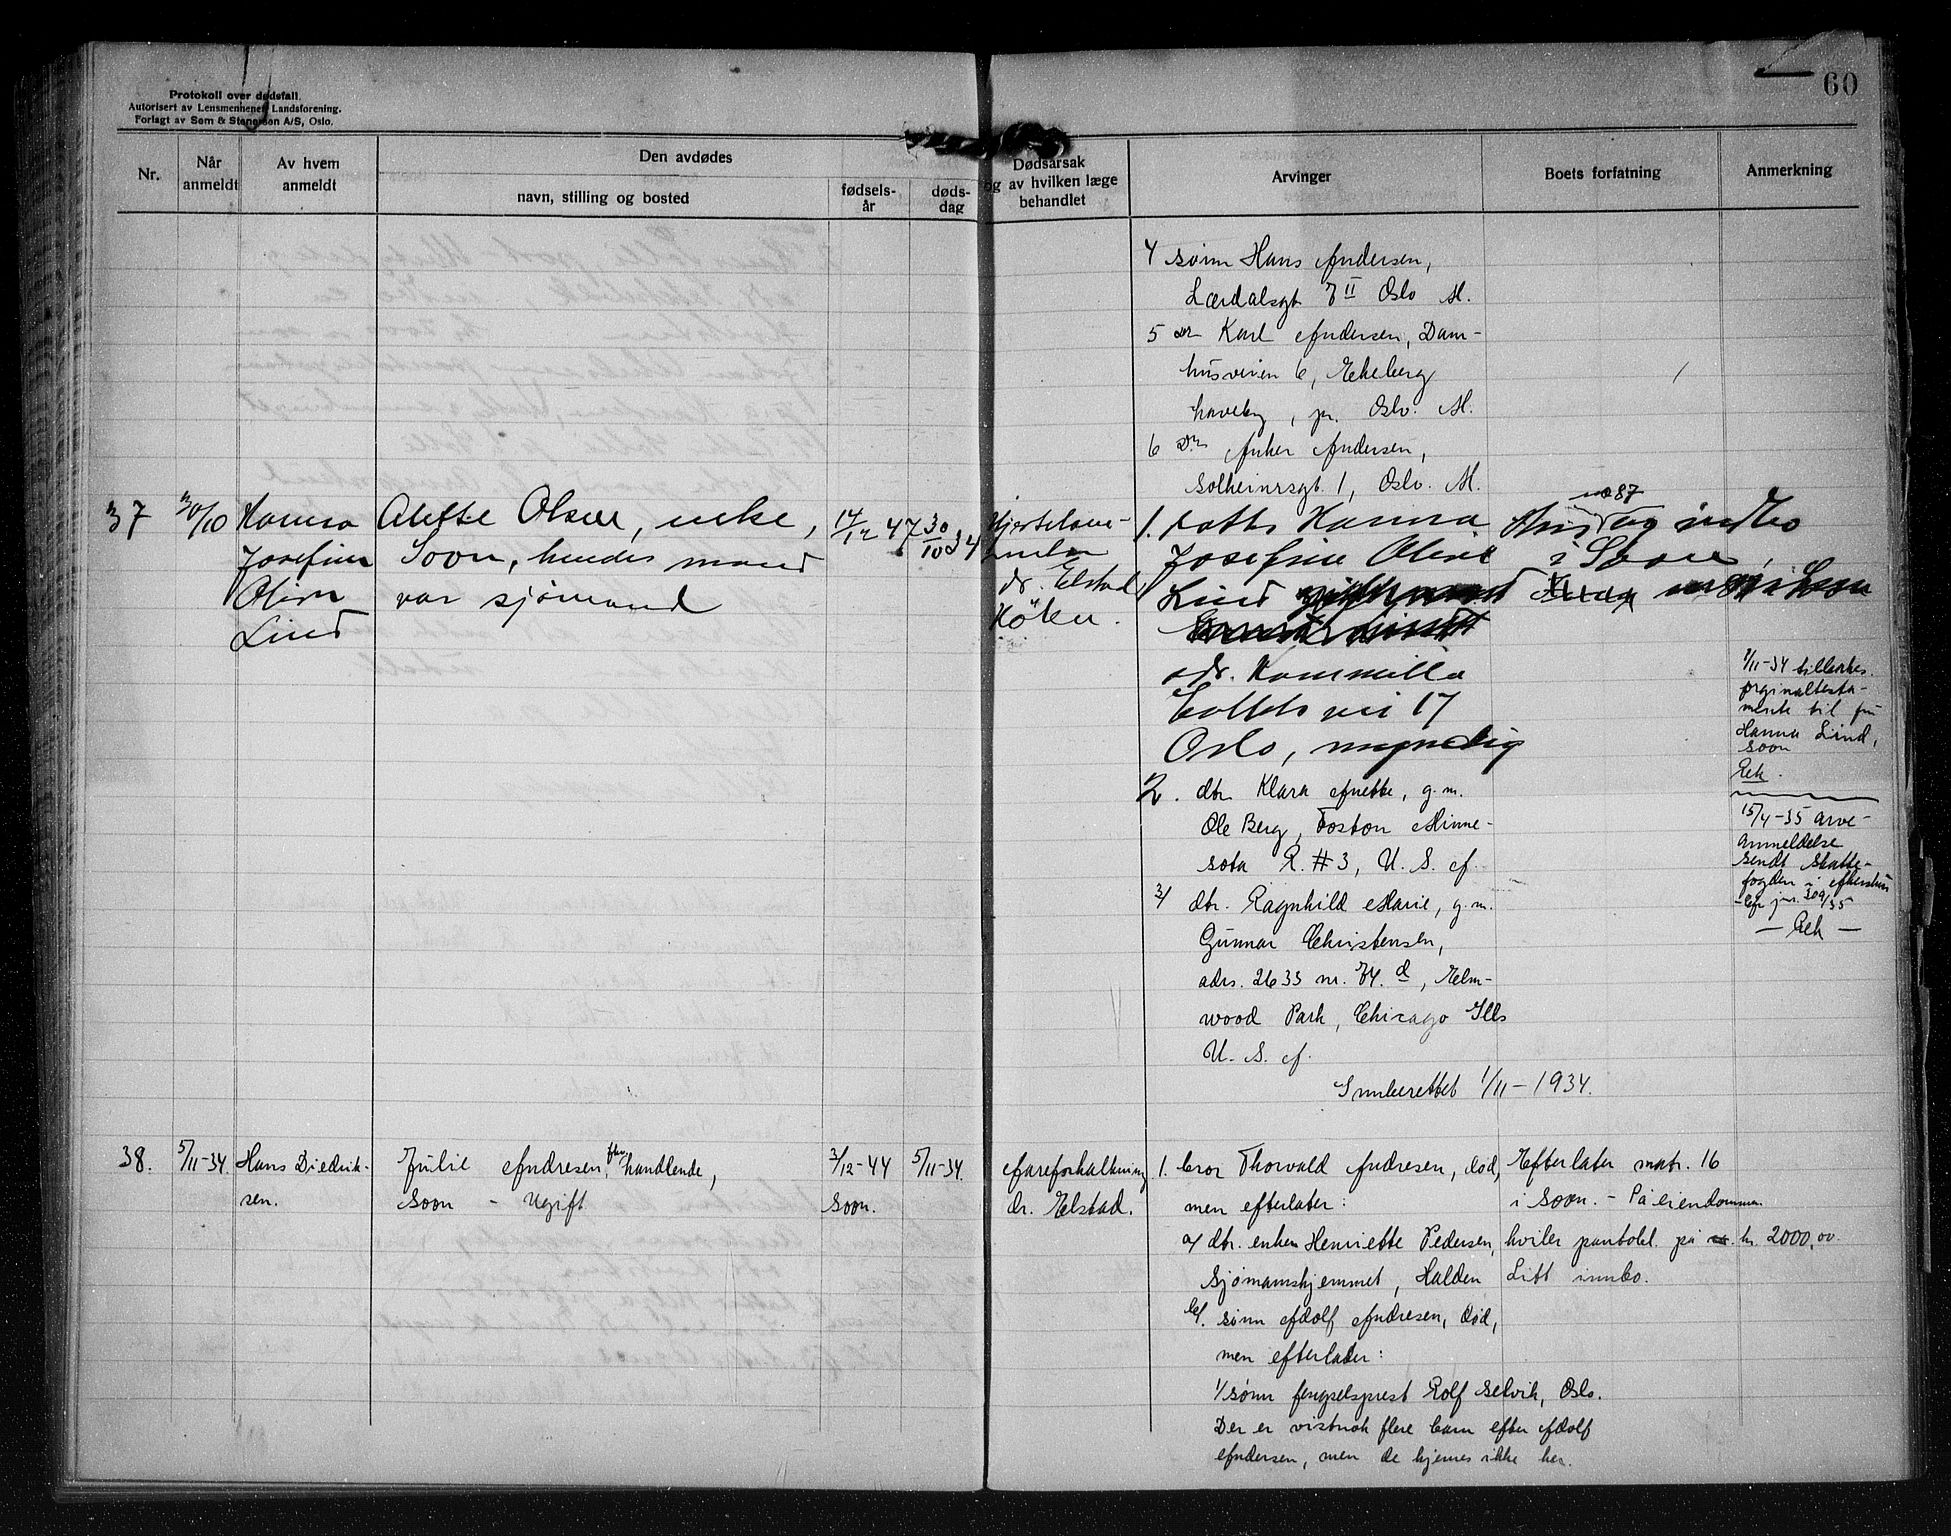 60
Protokoll over dødsfall.
Autorisert av Lensmennenes Landsforening.
Forlagt av Sem & Stenersen A/S, Oslo.
Nr.
Når
anmeldt
Av hvem
anmeldt
Den avdødes
navn, stilling og bosted
fødsels-
år
døds-
dag
Dødsårsak
og av hvilken læge
behandlet
Arvinger
Boets forfatning
Anmerkning
4 sønn Hans Andersen,
Lærdalsgt 7 II Oslo M.
5 do Karl Andersen, Dam-
husveien 6, Ekeberg
haveby, pr. Oslo. M.
6 do Anker Andersen,
Solheimsgt. 1, Oslo. M.
37
30/10
Hanna
Josefine
Oline
Lind
Alette Olsen, enke,
Soon, hendes mand
var sjømand
14/12 47
30/10 34
Hjertelam-
melse
dr. Elstad
Hölen.
1. datter Hanna
Josefine Oline
Lind
adr. Kammilla
Colletts vei 17
Oslo, myndig
no 87
Hus og indbo
i Soon,
1/11-34 tilbakes.
orginaltesta-
mente til fru
Hanna Lind,
Soon
Rek.
15/4-35 arve-
anmeldelse
sendt skatte-
fogden i Akershus
- Cfr jnr. 309/35
- Rek -
2. dtr. Klara Anette, g.m.
Ole Berg, Foston Minne-
sota R. #3, U. S. A.
3/ dtr. Ragnhild Marie, g.m.
Gunnar Christensen,
adrs. 2635 nr. 74. d, Elm-
wood Park, Chicago Ills
U. S. A.
Innberettet 1/11-1934.
38.
5/11-34.
Hans Diedrik-
sen.
Julie Andresen, fhv. handlende,
Soon - Ugift
3/12-44
Soon.
5/11-34.
Åreforkalkning
dr. Elstad.
1. bror Thorvald Andresen, død,
men efterlater:
a/ dtr. enken Henriette Pedersen,
Sjømannshjemmet, Halden
b/. sønn Adolf Andresen, død,
men efterlater:
1/ sønn fengselsprest Rolf Selvik, Oslo.
Der er vistnok flere barn efter Adolf
Andersen, men de kjennes ikke her.
Efterlater matr. 16
i Soon. - På eiendommen
hviler pantobl. på kr. 2000,00.
Litt innbo.